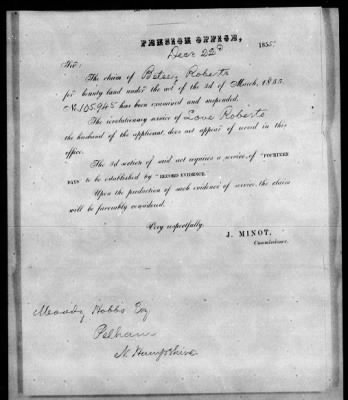 PENSION OFFICE,
Decr 22d 1855
Sir:
The claim of Betsey Roberts
for bounty land under the act of the 3d of March, 1855,
No 105,945 has been examined and suspended.
The revolutionary service of Love Roberts
the husband of the applicant does not appear of record in this
office.
The 3d section of said act requires a service, of "FOURTEEN
DAYS" to be established by "RECORD EVIDENCE."
Upon the production of such evidence of service, the claim
will be favorably considered.
Very respectfully,
J. MINOT,
Commissioner.
Moody Hobbs Esq
Pelham
N. Hampshire